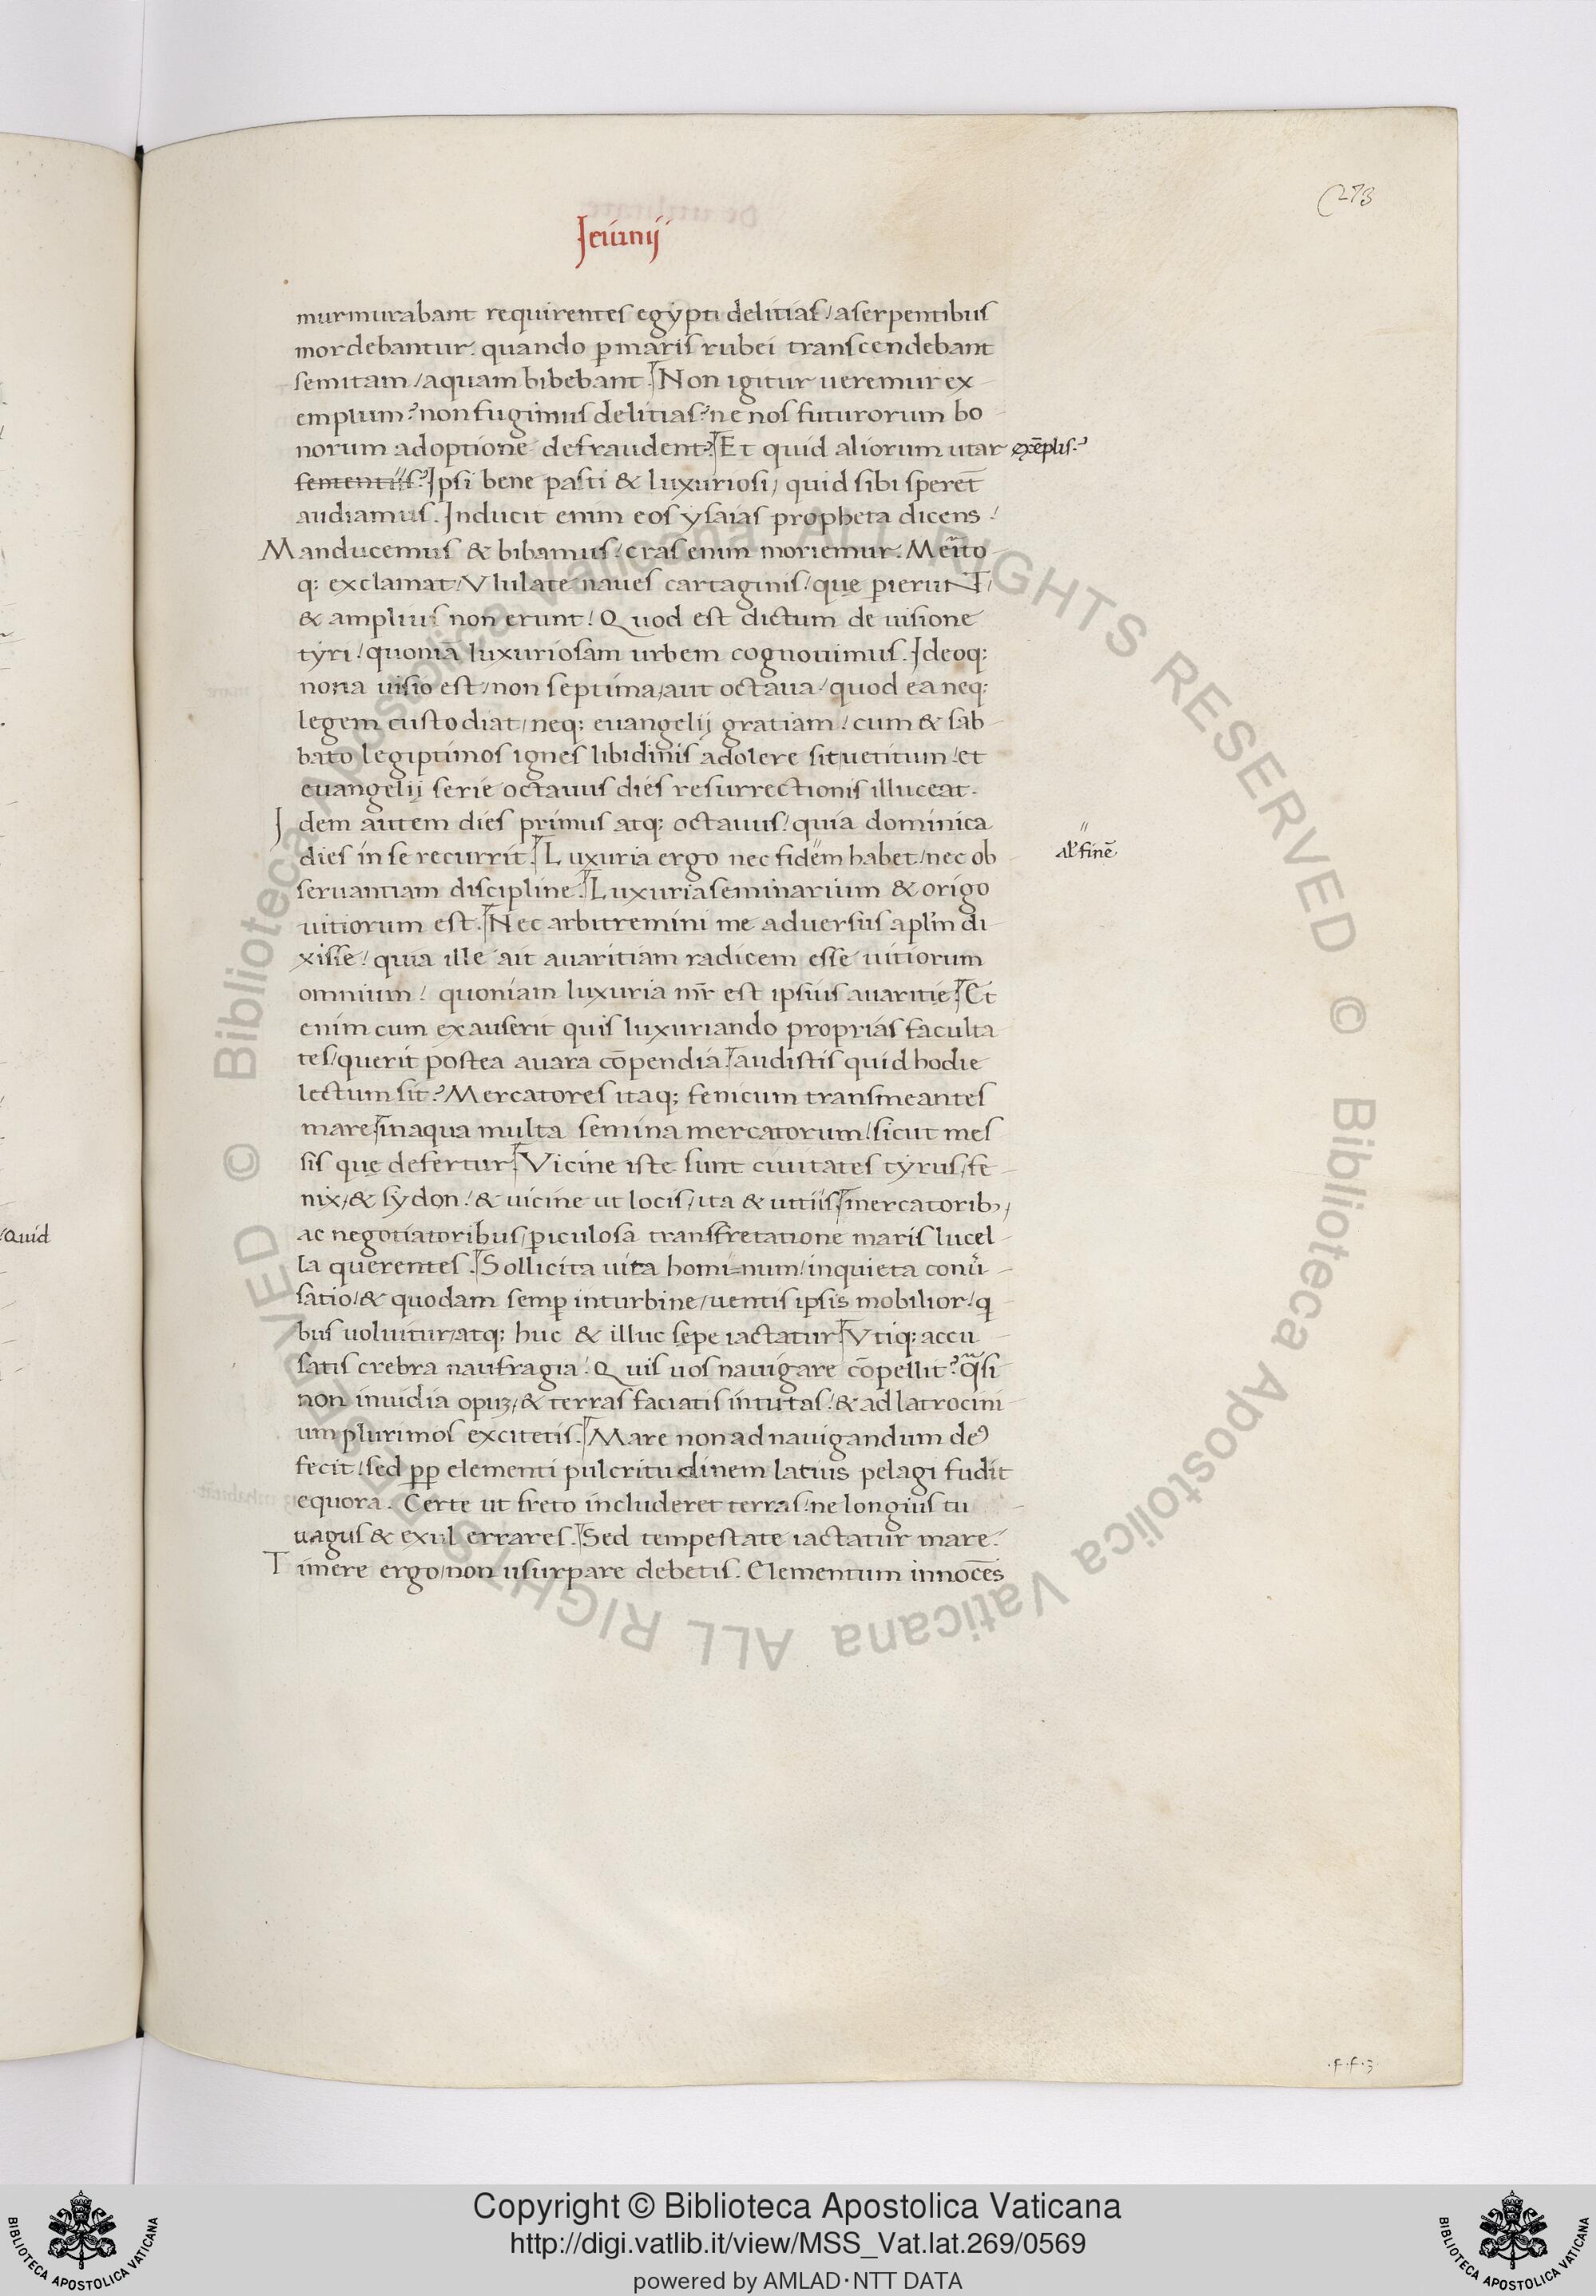 273
Jeiunij
murmurabant requirentes egypti delitias / a serpentibus
mordebantur. quando p̱ maris rubei transcendebant
semitam / aquam bibebant. Non igitur ueremur ex
emplum? non fugimus delitias? ne nos futurorum bo
norum adoptione defraudent? Et quid aliorum utar exēplis?
sententiis? Ipsi bene pasti & luxuriosi, quid sibi sperēt
audiamus. Inducit enim eos ysaias propheta dicens /
Manducemus & bibamus / cras enim moriemur. Merito
q; exclamat / Vlulate naues cartaginis / quę p̱ieruNT /
& amplius non erunt / Quod est dictum de uisione
tyri / quoniā luxuriosam urbem cognouimus. Ideoq;
nona uisio est / non septima, aut octaua / quod ea neq;
legem custodiat / neq; euangelij gratiam / cum & sab
bato legiptimos ignes libidinis adolere sit uetitum / et
euangelij serie octauus dies resurrectionis illuceat.
Idem autem dies primus atq; octauus / quia dominica
dies in se recurrit. Luxuria ergo nec fidem habet / nec ob
al' finē
seruantiam discipline. Luxuria seminarium & origo
uitiorum est. Nec arbitremini me aduersus aplm̄ di
xisse / quia ille ait auaritiam radicem esse uitiorum
omnium / quoniam luxuria mr̄ est ipsius auaritie. Et
enim cum exauserit quis luxuriando proprias faculta
tes / querit postea auara cōpendia. audistis quid hodie
lectum sit? Mercatores itaq; fenicum transmeantes
mare in aqua multa semina mercatorum / sicut mes
sis quę defertur. Vicine iste sunt ciuitates tyrus, fe
nix, & sydon / & uicine ut locis, ita & uitiis mercatorib;,
ac negotiatoribus, p̱iculosa transfretatione maris lucel
Quid
la querentes. Sollicita uita homi=num / inquieta conu̕
satio / & quodam semp̱ in turbine, uentis ipsis mobilior / q
bus uoluitur, atq; huc & illuc sępe iactatur. Vtiq; accu
satis crebra naufragia. Quis uos nauigare cōpellit? q̄si
non inuidia opuȝ, & terras faciatis intutas / & ad latrocini
um plurimos excitetis. Mare non ad nauigandum deꝰ
fecit / sed p̱p̱ elementi pulcritudinem latius pelagi fudit
equora. Certe ut freto includeret terras / ne longius tu
uagus & exul errares. Sed tempestate iactatur mare.
Timere ergo, non usurpare debetis. Elementum innocēs
.f.f.3
© Biblioteca Apostolica Vaticana ALL RIGHTS RESERVED © Biblioteca Apostolica Vaticana ALL RIGHTS RESERVED
Copyright © Biblioteca Apostolica Vaticana
http://digi.vatlib.it/view/MSS_Vat.lat.269/0569
powered by AMLAD·NTT DATA
BIBLIOTECA APOSTOLICA VATICANA
BIBLIOTECA APOSTOLICA VATICANA